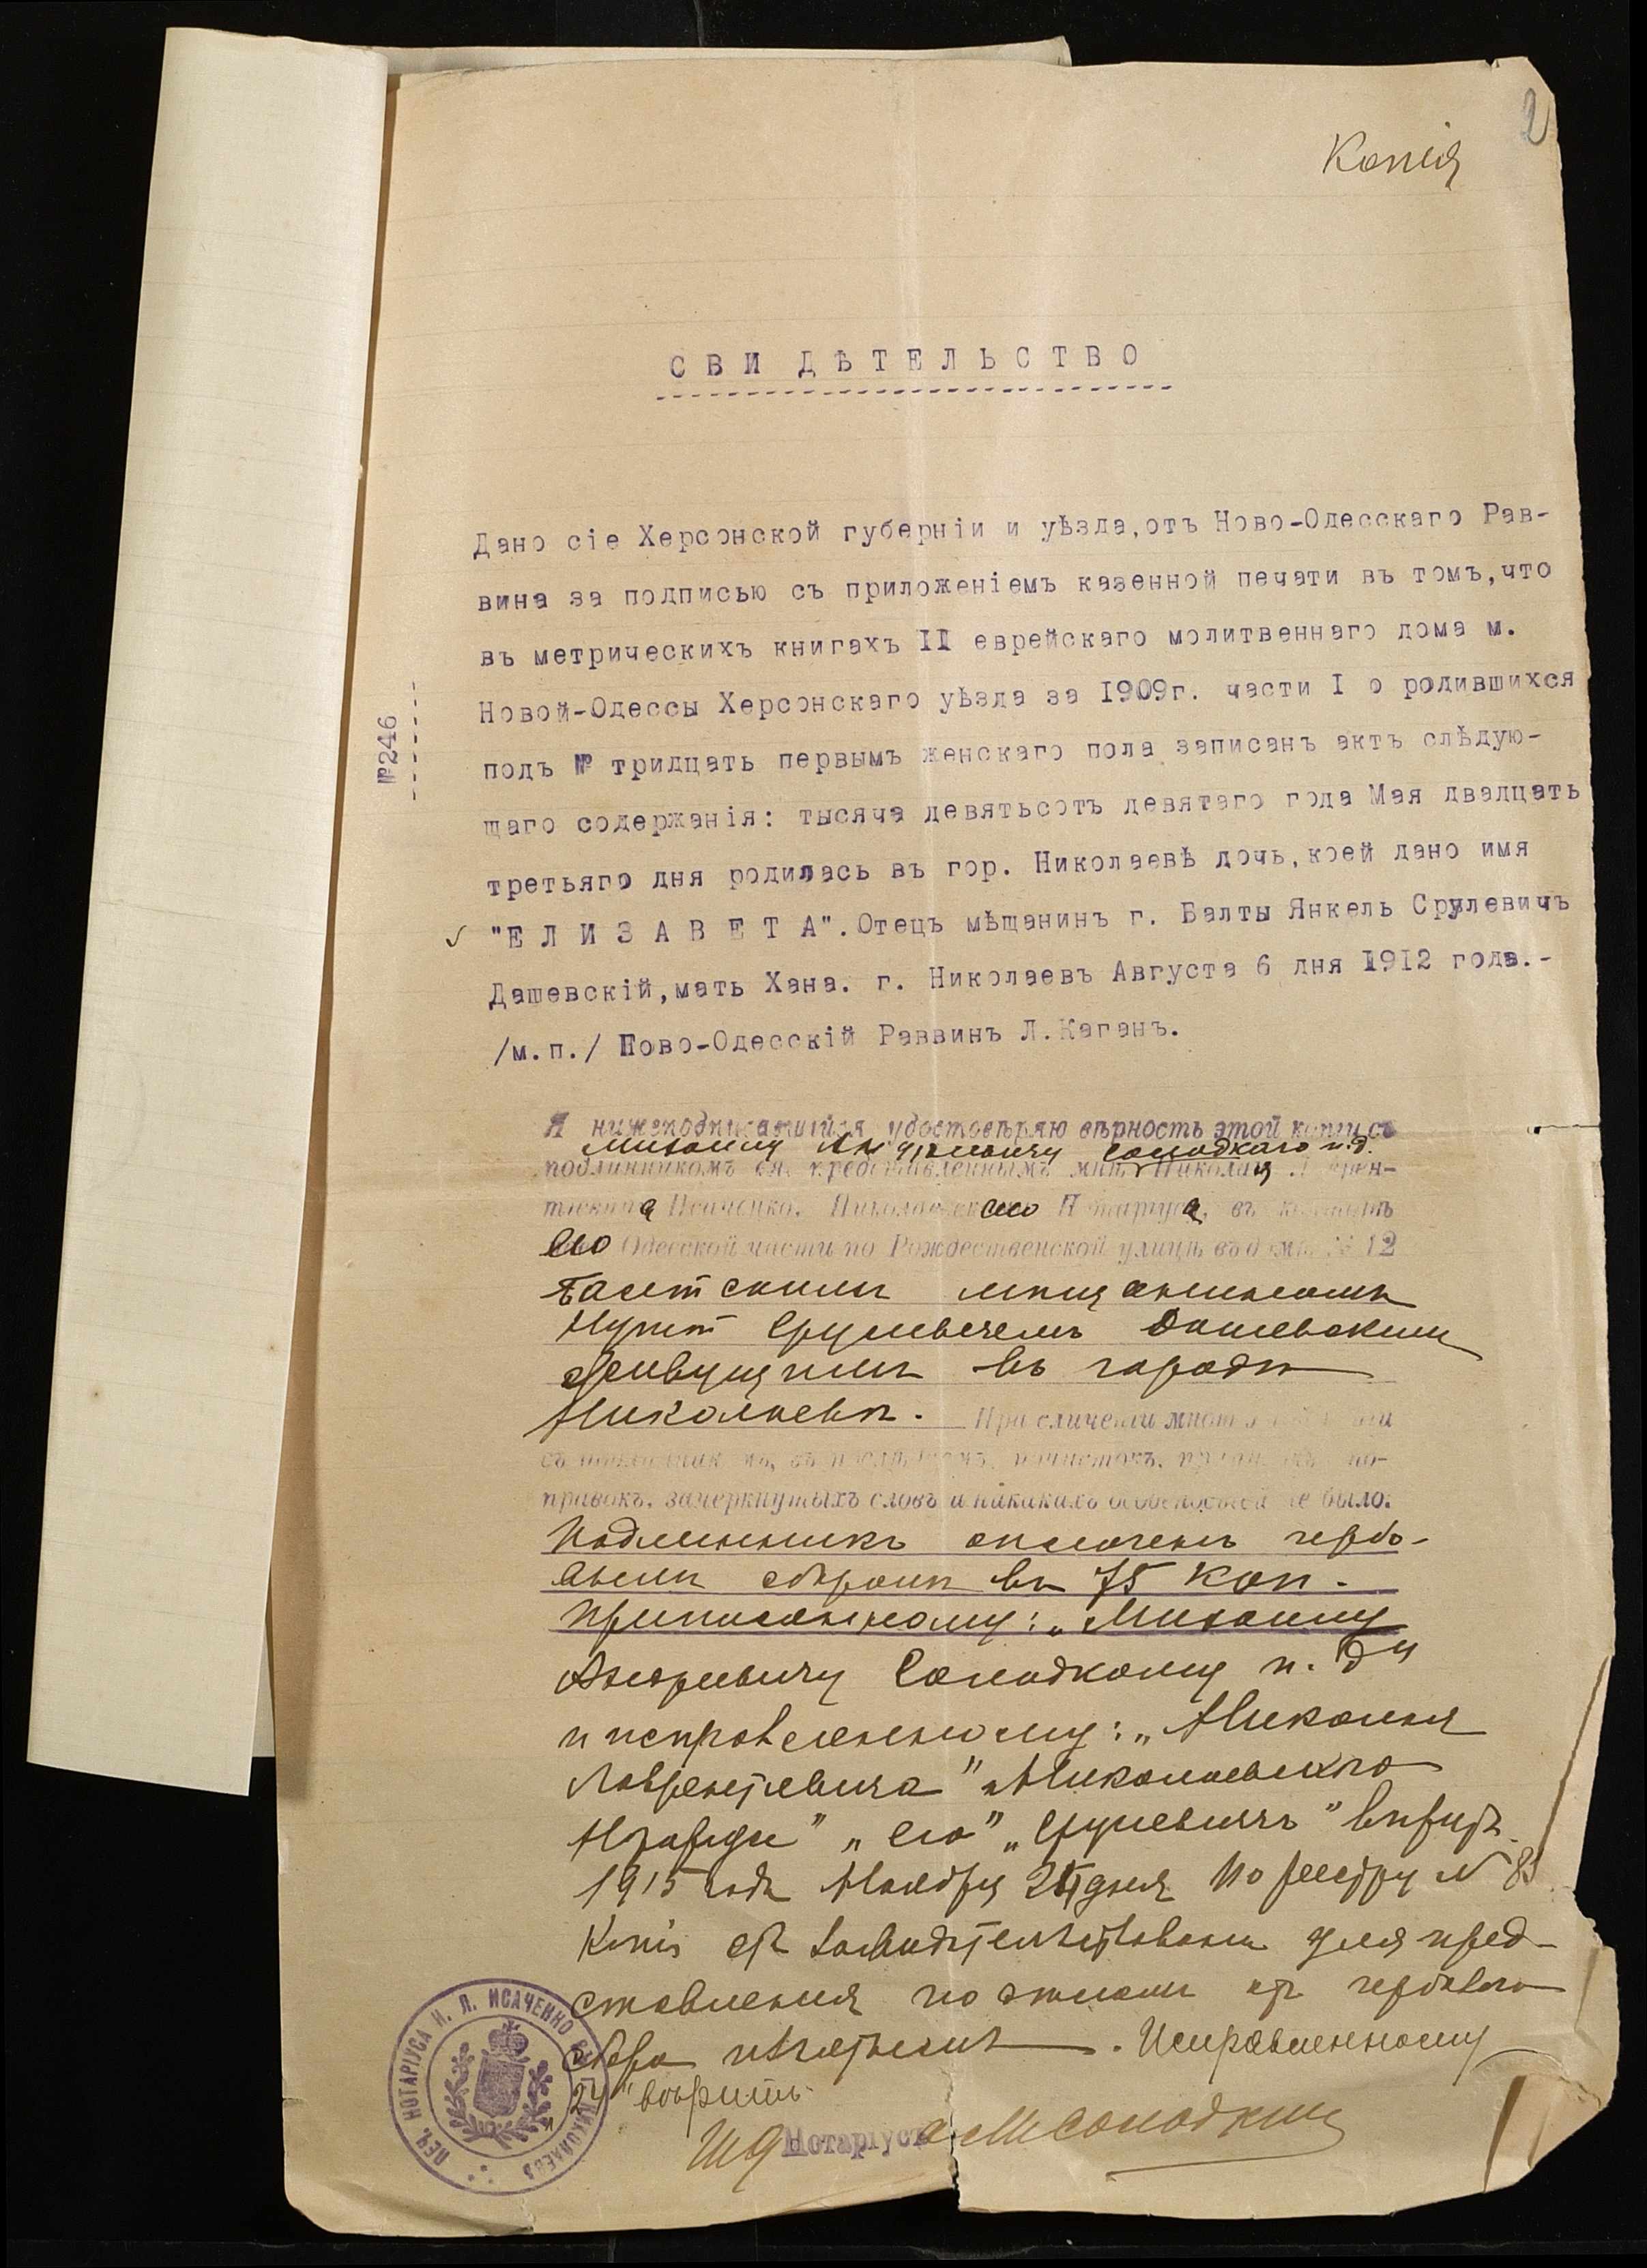 2
Копія
СВИДѢТЕЛЬСТВО
Дано сіе Херсонской губерніи и уѣзда,отъ Ново-Одесскаго Рав-
вина за подписью съ приложеніемъ казенной печати въ томъ,что
въ метрическихъ книгахъ II еврейскаго молитвеннаго дома м.
Новой-Одессы Херсонскаго уѣзда за 1909г. части I о родившихся
№246
подъ № тридцать первымъ женскаго пола записанъ актъ слѣдую-
щаго содержанія: тысяча девятьсотъ девятаго года Мая двадцать
третьяго дня родилась въ гор. Николаевѣ дочь,коей дано имя
"ЕЛИЗАВЕТА".Отецъ мѣщанинъ г. Балты Янкель Срулевичъ
Дашевскій,мать Хана. г. Николаевъ Августа 6 дня 1912 года.-
/м.п./ Ново-Одесскій Раввинъ Л.Каганъ.
Я нижеподписавшійся удостовѣряю вѣрность этой копіи съ
Солодкаго и.д.
подлинникомъ ея, представленнымъ мнѣ, Николая
Исаченко, Нотаріуса, въ
его Одесской части по Рождественской улицѣ въ домѣ № 12
Балтскимъ мѣщаниномъ
Срулевичемъ Дашевскимъ
живущимъ въ городѣ
Николаевѣ. При сличеніи мною
съ подлинникомъ, въ послѣднемъ, почистокъ, по-
правокъ, зачеркнутыхъ словъ и никакихъ особенностей не было.
Подлинникъ оплоченъ гербо-
вымъ сборомъ въ 75 коп.
Приписанному: „Михаилу
Солодкому и. д"
и исправленному: „Николая
Лаврентьевича" „Николаевскаго
Нотаріуса" „его" „Срулевичъ" вѣрить.
1915 года Ноября дня По реестру №
Копія засвидѣтельствована для пред-
ставленія
сбора . Исправленному
„24" вѣрить.
И Д Нотаріуса М Солодкій
ПЕЧ. НОТАРІУСА Н. Л. ИСАЧЕНКО ВЪ Г. НИКОЛАЕВѢ